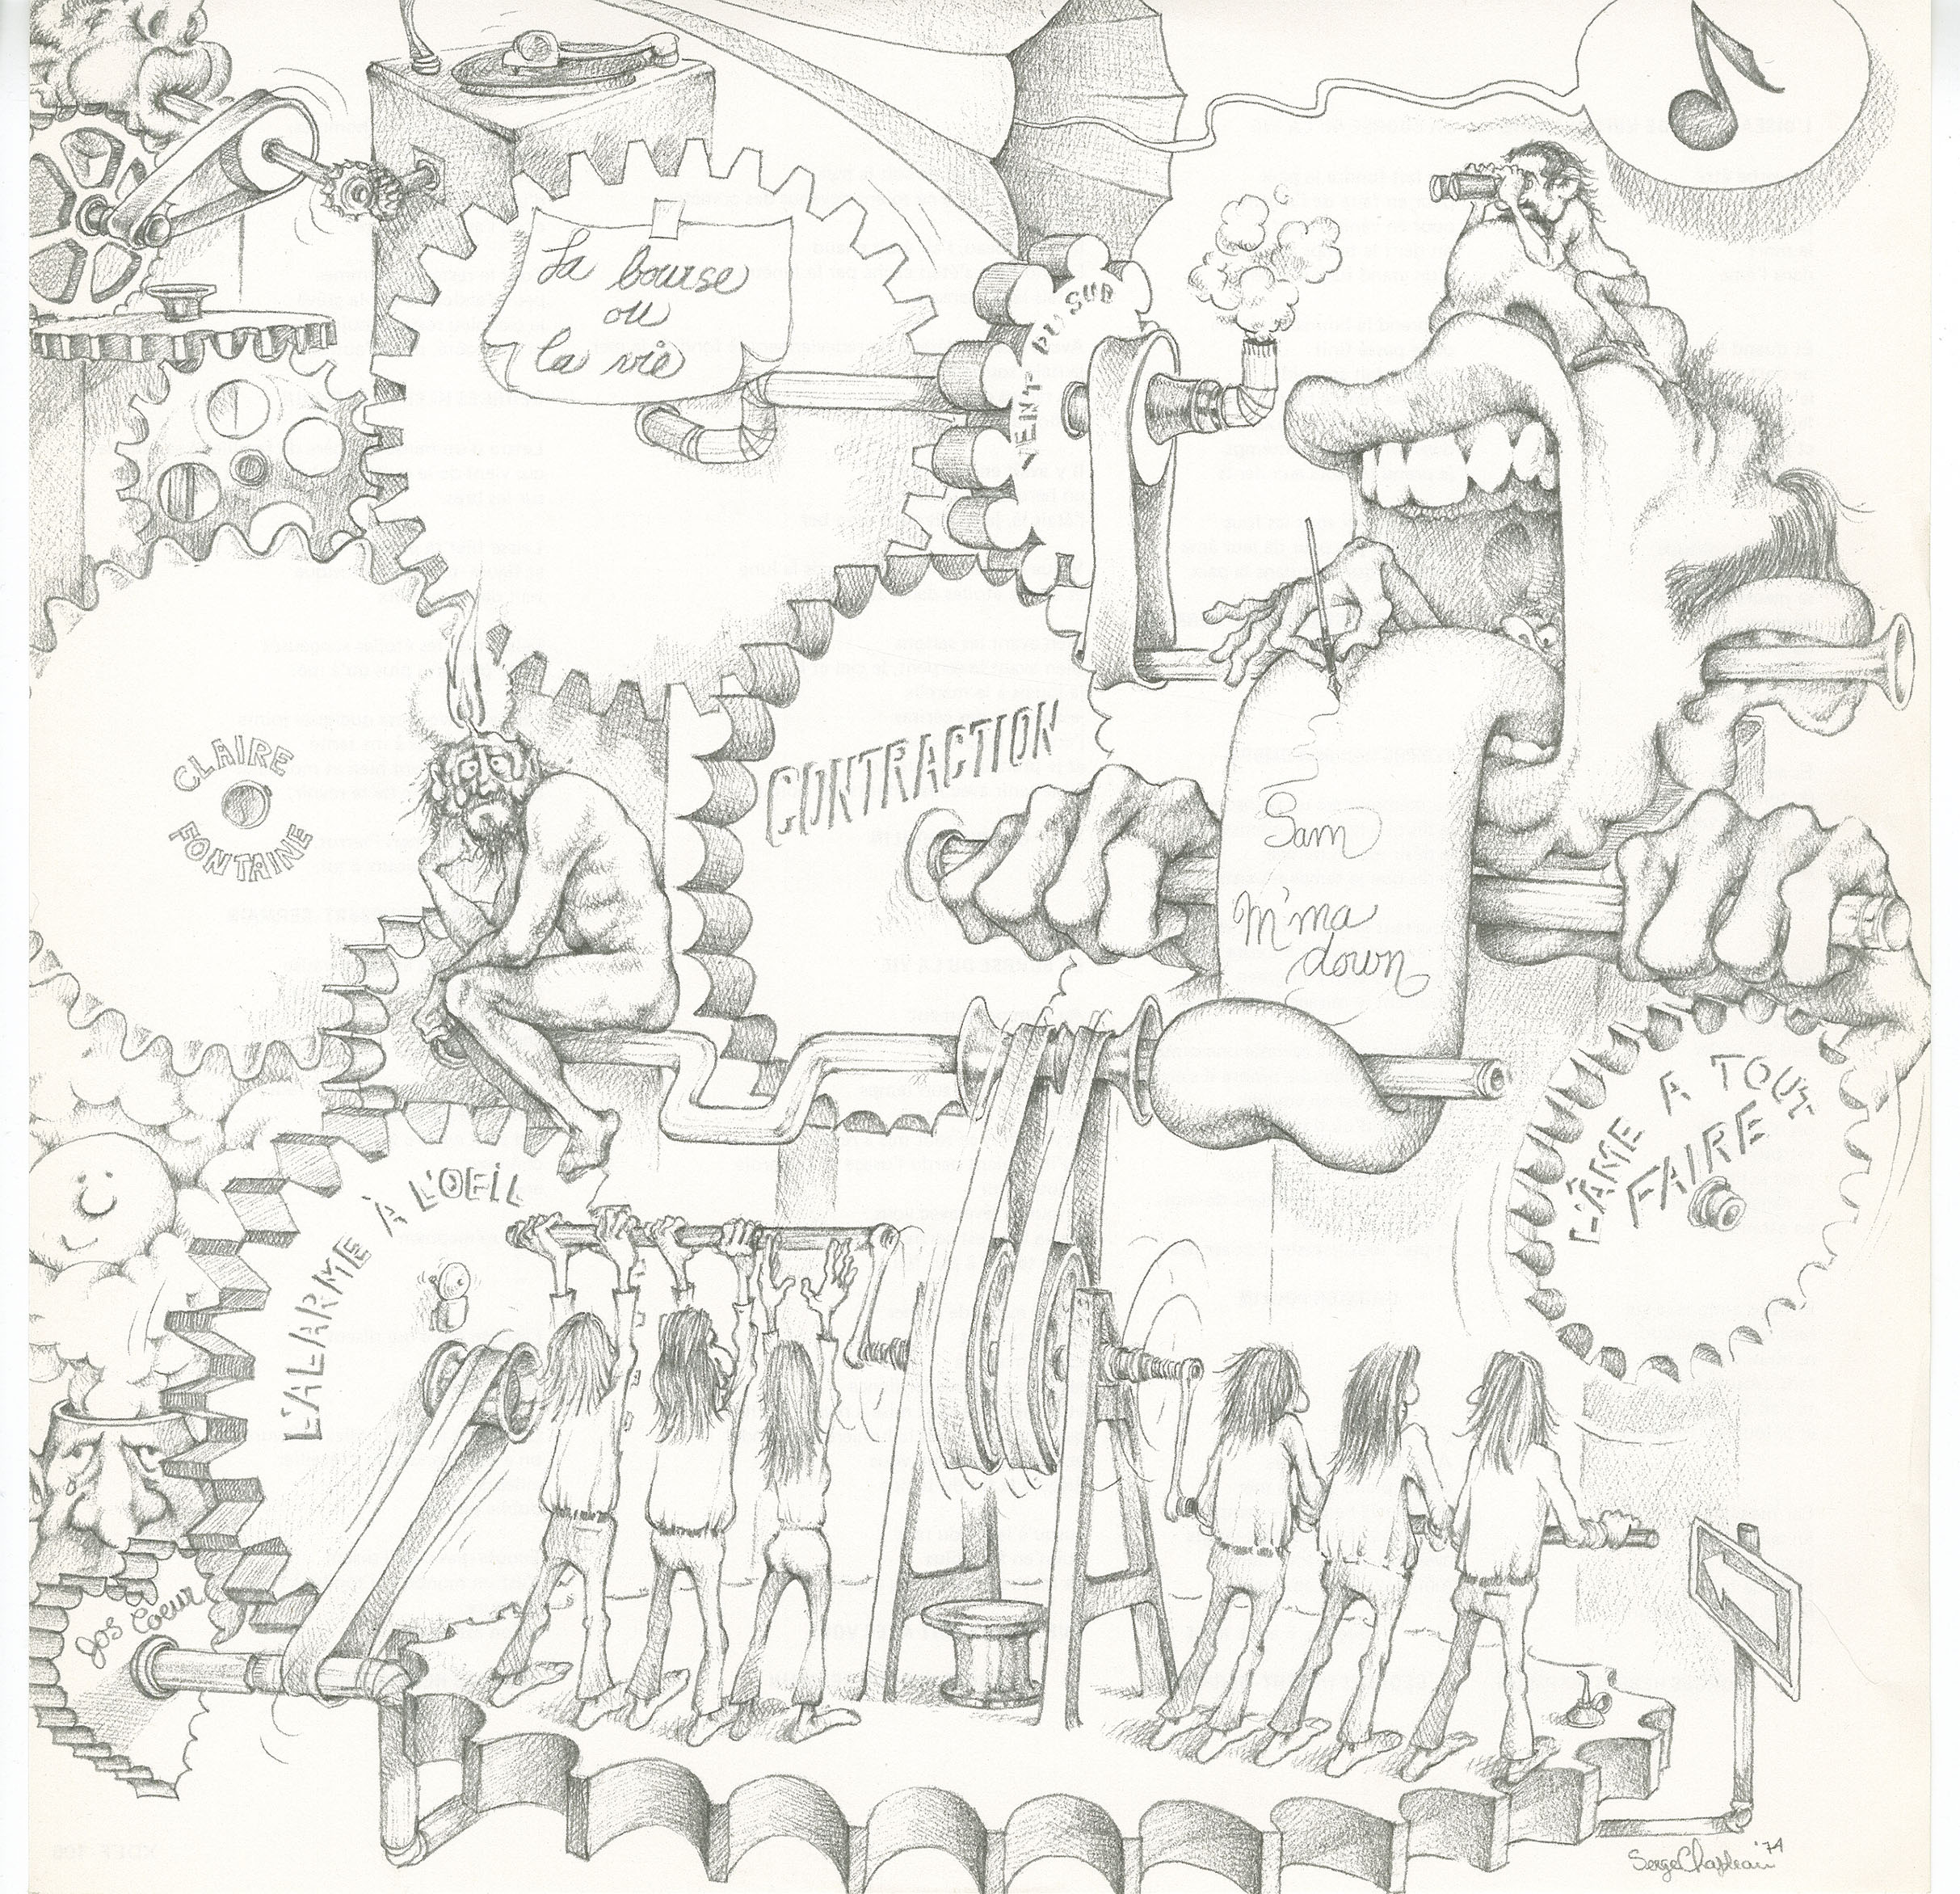 La bourse
ou
la vie
VENT DU SUD
CONTRACTION
CLAIRE
FONTAINE
Sam
M'ma
down
L'ÂME A TOUT
FAIRE
L'ALARME À L'OEIL
Jos Coeur
Serge Chapleau '74